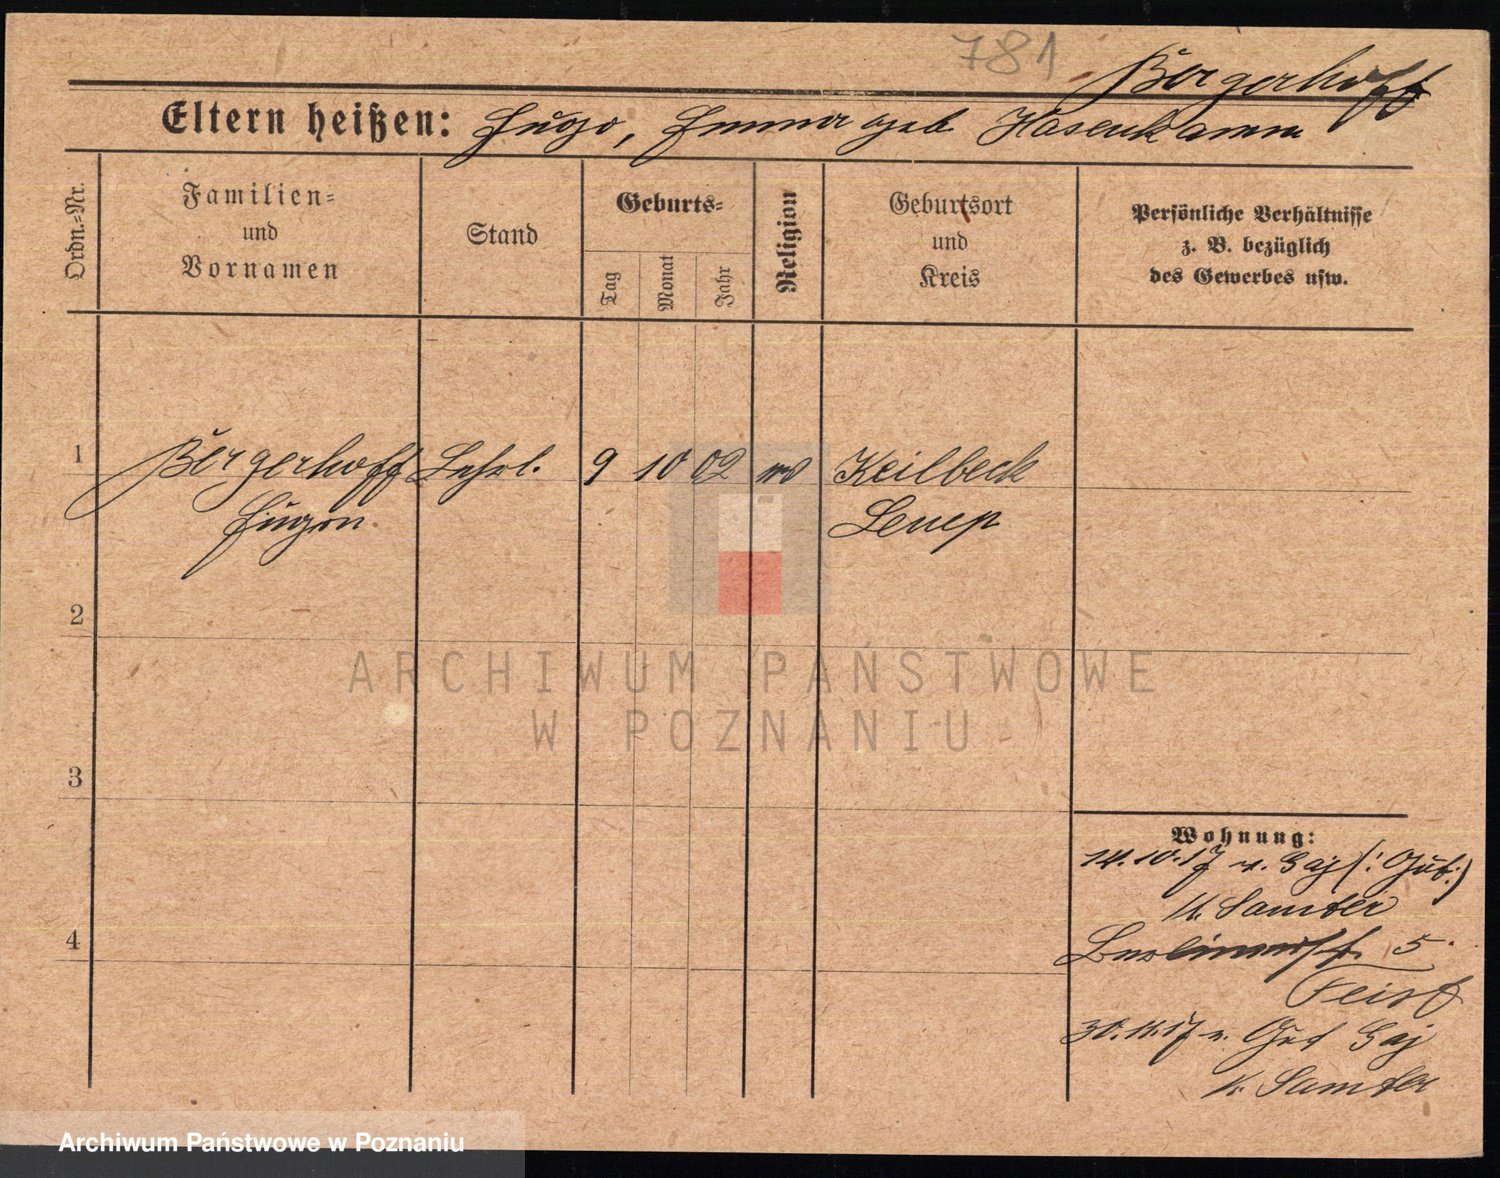 781
Bergerhoff
Eltern heißen: Hugo, Emma geb. Hasenkamm
Ordn.=Nr.
Familien=
und
Vornamen
Stand
Geburts=
Tag
Monat
Jahr
Religion
Geburtsort
und
Kreis
Persönliche Verhältnisse
z. B. bezüglich
des Gewerbes usw.
1
Bergerhoff Lehrl. 9 10 02 ev Keilbeck
Eugen Lenep
2
ARCHIWUM PAŃSTWOWE
W POZNANIU
3
Wohnung:
14.10.17 v. Gaj (: Gut :)
K. Samter
4
Berlinerstr. 5
Feist
30.11.17 n. Gut Gaj
K. Samter
Archiwum Państwowe w Poznaniu